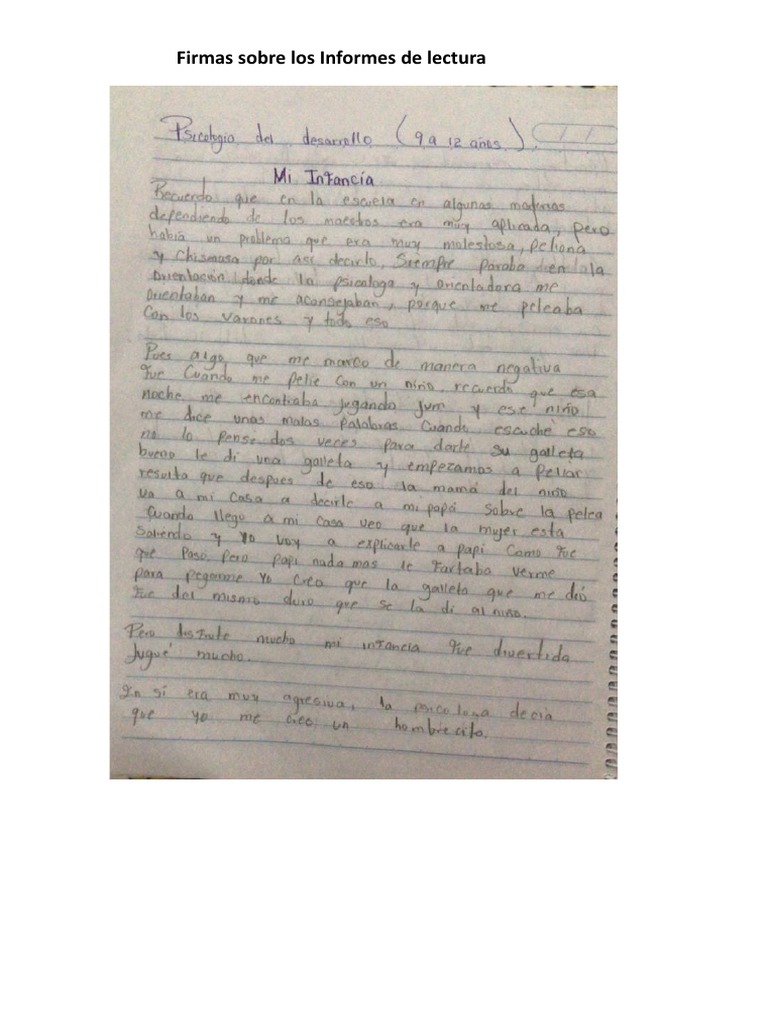 Firmas sobre los Informes de lectura
Psicologia del desarrollo (9 a 12 años)
Mi Infancia
Recuerdo que en la escuela en algunas materias
dependiendo de los maestros era muy aplicada, pero
había un problema que era muy molestosa, peliona
y chismosa por así decirlo, Siempre paraba en la
orientación donde la psicologa y orientadora me
orientaban y me aconsejaban, porque me peleaba
Con los varones y todo eso
Pues algo que me marco de manera negativa
fue Cuando me pelie con un niño, recuerdo que esa
noche me encontraba jugando jum y ese niño
me dice unas malas palabras Cuando escuché eso
no lo pensé dos veces para darle su galleta
bueno le di una galleta y empezamos a peliar
resulta que despues de eso la mamá del niño
va a mi casa a decirle a mi papá sobre la pelea
Cuando llego a mi casa veo que la mujer esta
saliendo y yo voy a explicarle a papi Como fue
que Pasó, pero papi nada mas le faltaba verme
para pegarme yo creo que la galleta que me dió
fue del mismo duro que se la di al niño.
Pero disfrute mucho mi infancia fue divertida
Jugué mucho.
En sí era muy agresiva, la psicologa decia
que yo me creo un hombrecito.